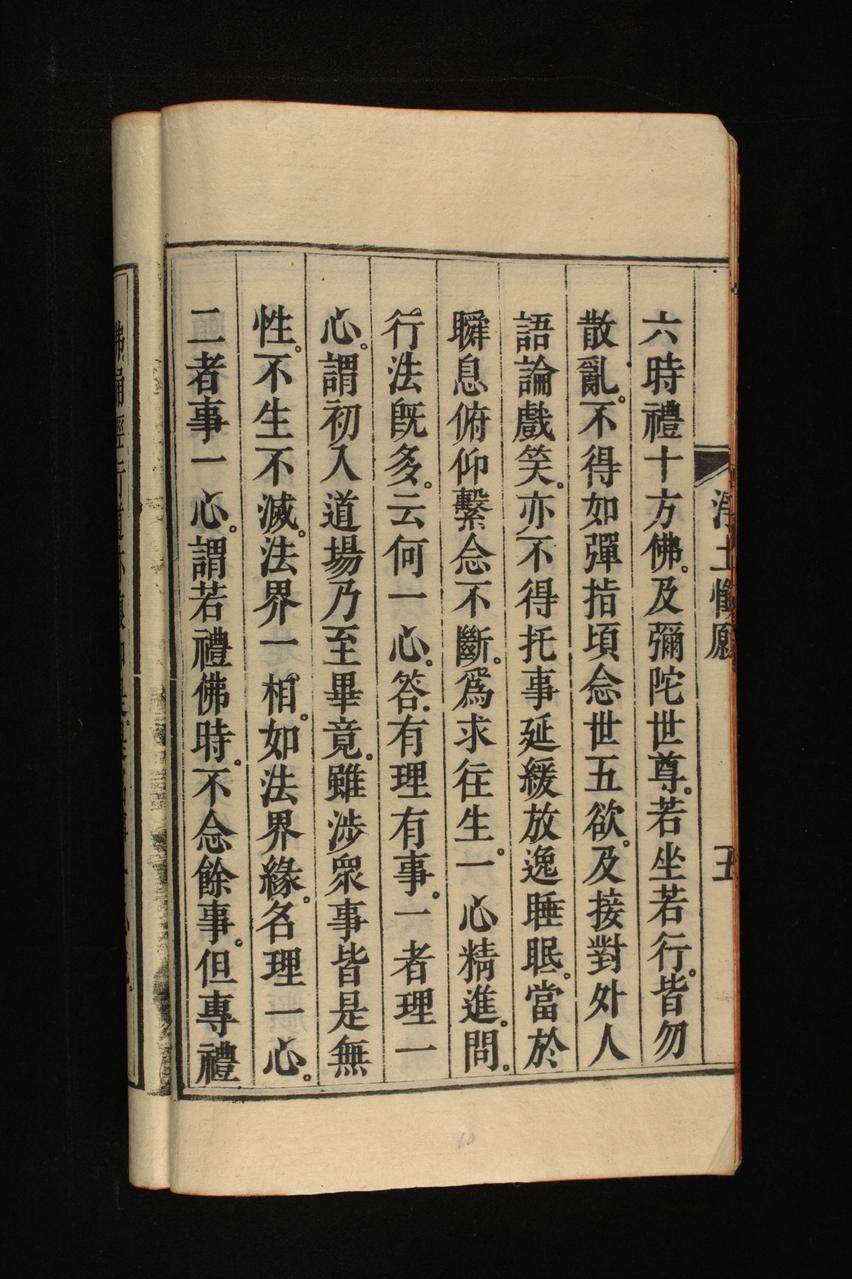 淨土懺願 五
六時禮十方佛。及彌陀世尊。若坐若行。皆勿
散亂。不得如彈指頃念世五欲。及接對外人
語論戲笑。亦不得托事延緩放逸睡眠。當於
瞬息俯仰繫念不斷。爲求往生。一心精進。問。
行法旣多。云何一心。答。有理有事。一者理一
心。謂初入道場乃至畢竟。雖涉衆事皆是無
性。不生不滅。法界一相。如法界緣。名理一心。
二者事一心。謂若禮佛時。不念餘事。但專禮